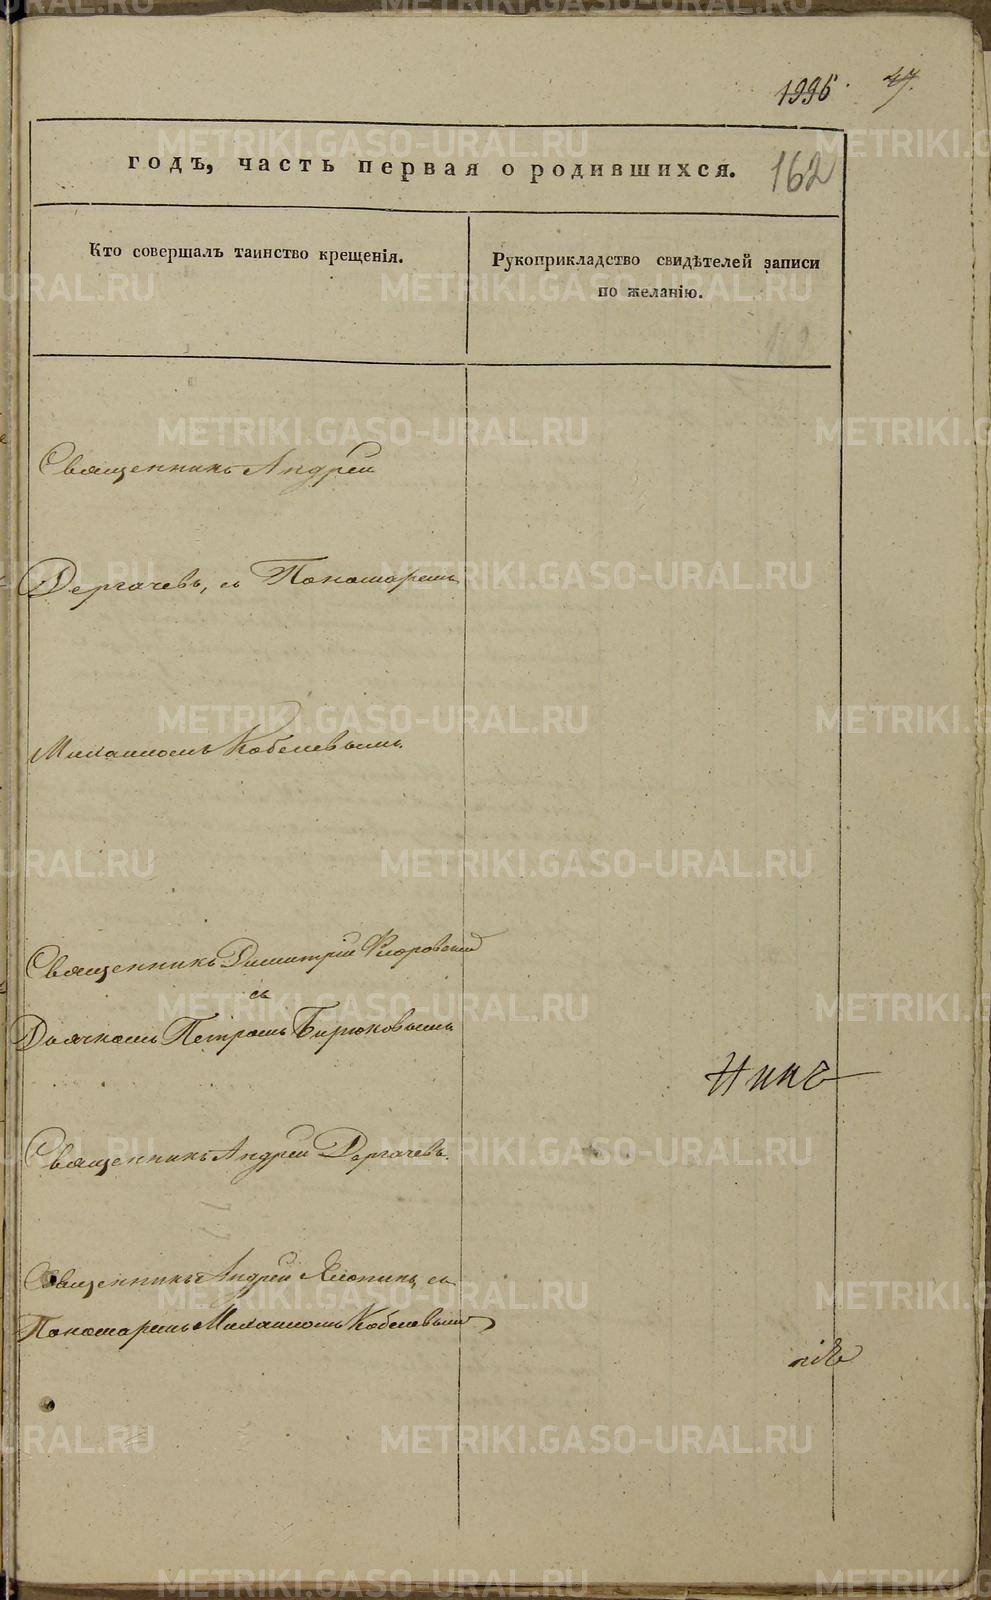 1996. 47.
годъ, часть первая о родившихся. 162
Кто совершалъ таинство крещенія.
Рукоприкладство свидѣтелей записи
по желанію.
Священникъ Андрей
Дергачевъ, съ Пономаремъ
Михаиломъ Кобелевымъ.
Священникъ Димитрій Флоровскій
съ
Дьячкомъ Петромъ Бирюковымъ
Священникъ Андрей Дергачевъ.
Священникъ Андрей съ
Пономаремъ Михаиломъ Кобелевымъ
METRIKI.GASO-URAL.RU